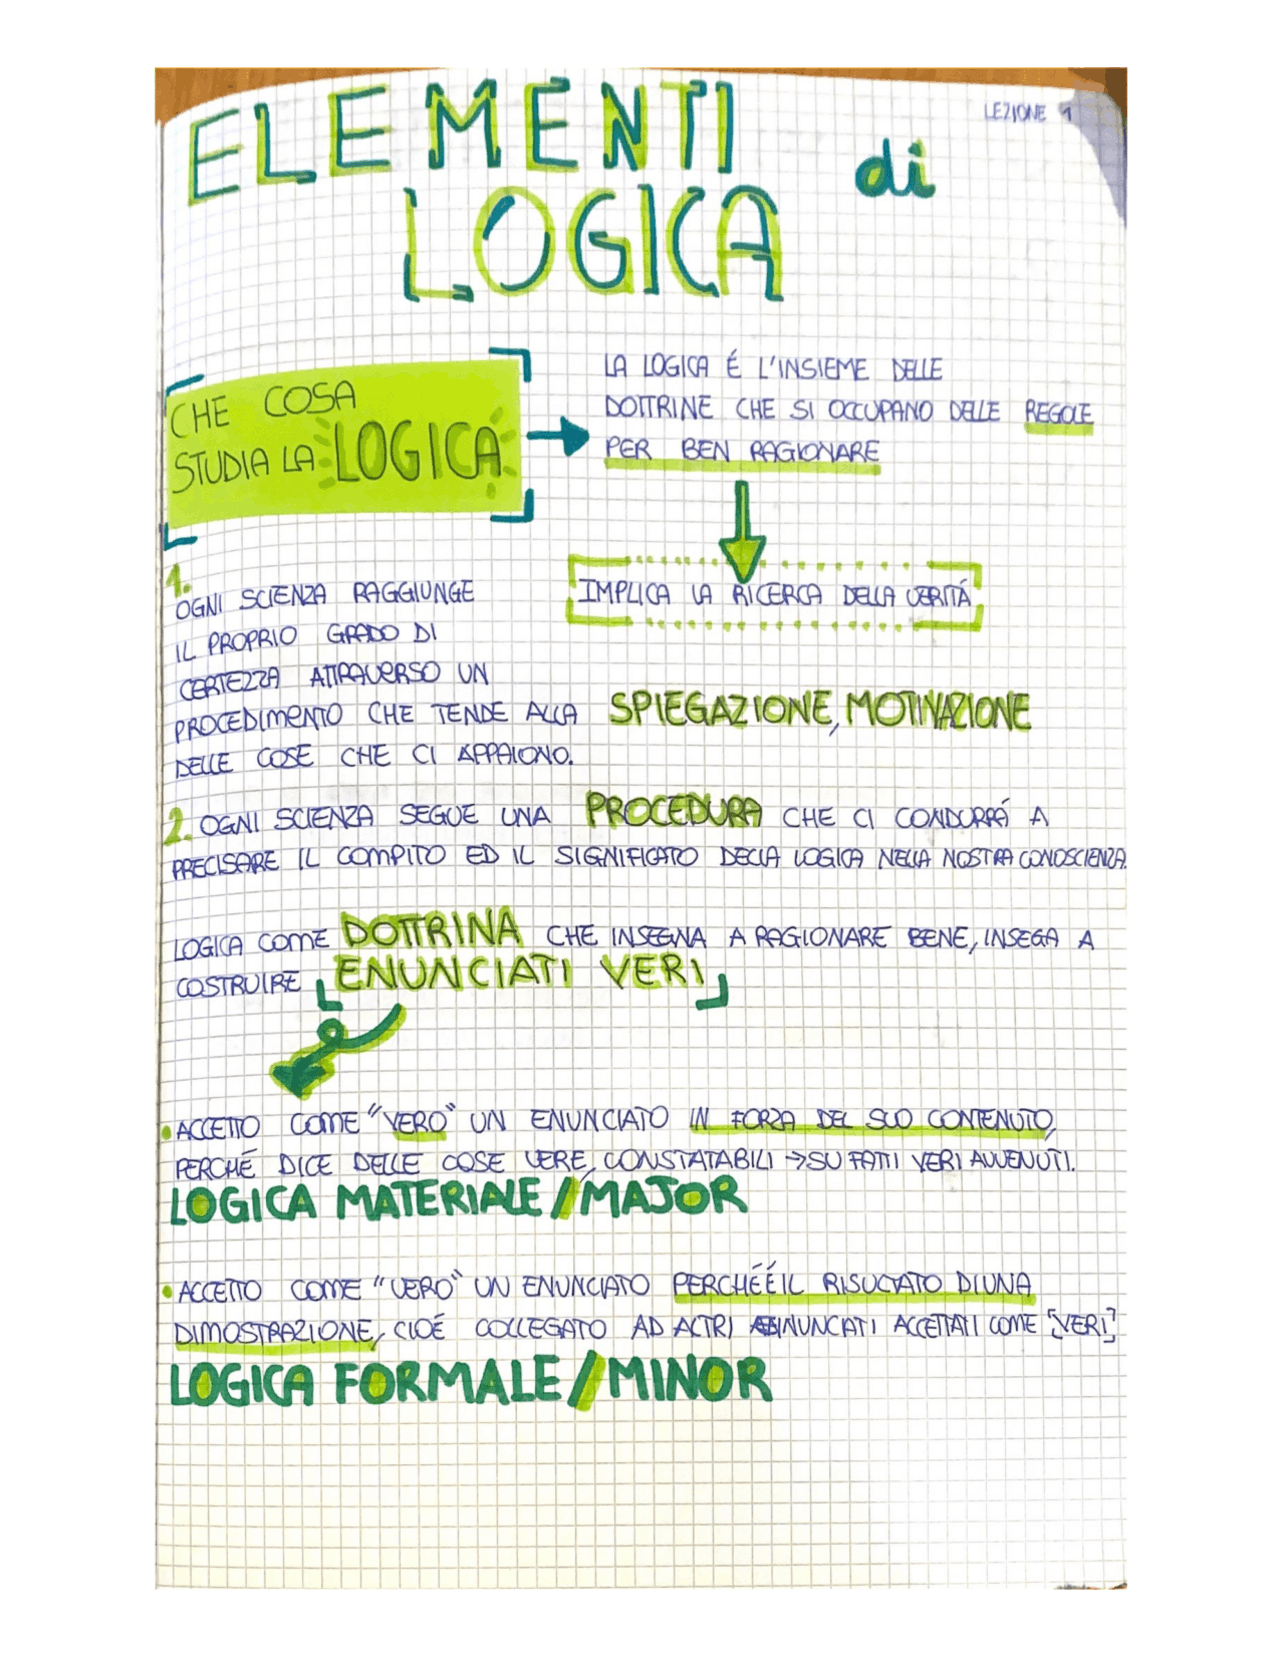 LEZIONE 1
ELEMENTI di
LOGICA
CHE COSA
STUDIA LA LOGICA
LA LOGICA É L'INSIEME DELLE
DOTTRINE CHE SI OCCUPANO DELLE REGOLE
PER BEN RAGIONARE
IMPLICA LA RICERCA DELLA VERITÁ
1.
OGNI SCIENZA RAGGIUNGE
IL PROPRIO GRADO DI
CERTEZZA ATTRAVERSO UN
PROCEDIMENTO CHE TENDE ALLA SPIEGAZIONE, MOTIVAZIONE
DELLE COSE CHE CI APPAIONO.
2. OGNI SCIENZA SEGUE UNA PROCEDURA CHE CI CONDURRÁ A
PRECISARE IL COMPITO ED IL SIGNIFICATO DELLA LOGICA NELLA NOSTRA CONOSCIENZA.
LOGICA COME DOTTRINA CHE INSEGNA A RAGIONARE BENE, INSEGA A
COSTRUIRE ENUNCIATI VERI
• ACCETTO COME "VERO" UN ENUNCIATO IN FORZA DEL SUO CONTENUTO,
PERCHÉ DICE DELLE COSE VERE, CONSTATABILI → SU FATTI VERI AVVENUTI.
LOGICA MATERIALE/MAJOR
• ACCETTO COME "VERO" UN ENUNCIATO PERCHÉ É IL RISULTATO DI UNA
DIMOSTRAZIONE, CIOÉ COLLEGATO AD ALTRI ENUNCIATI ACCETTATI COME [VERI]
LOGICA FORMALE/MINOR